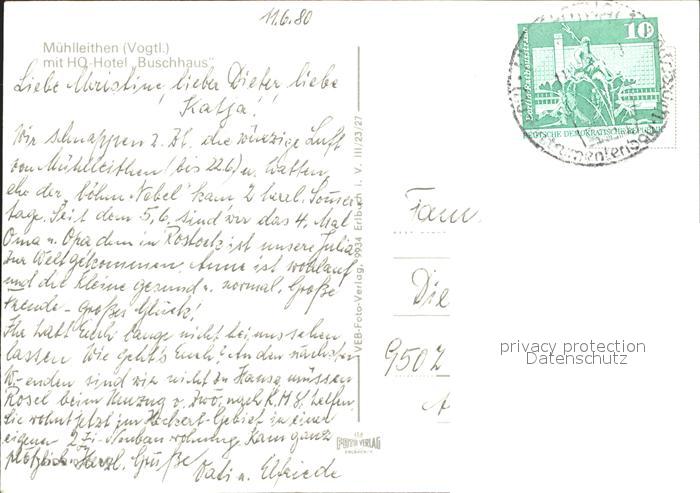 11.6.80
Mühlleithen (Vogtl.)
mit HO-Hotel „Buschhaus"
Liebe Christine, lieber Dieter, liebe
Katja!
Wir schnappen z. Zt. die würzige Luft
von Mühlleithen (bis 22.6) u. hatten,
ehe der "böhm. Nebel" kam 2 herrl. Sonnen-
tage. Seit dem 5.6. sind wir das 4. Mal
Oma u. Opa denn in Rostock ist unsere Julia
zur Welt gekommen. Anne ist wohlauf
und die Kleine gesund u. normal. Große
Freude - großes Glück!
Ihr habt Euch lange nicht bei uns sehen
lassen. Wie geht's Euch? An den nächsten
W-enden sind wir nicht zu Hause, müssen
Rosel beim Umzug v. Zwo. nach K.M.S. helfen.
Sie wohnt jetzt im Heckert-Gebiet in einer
eigenen 2 Zi-Neubauwohnung. Kam ganz
plötzlich. Herzl. Grüße
u. Elfriede
VEB-Foto-Verlag, 9934 Erlbach i. V. III/23/27
FOTO VERLAG
ERLBACH
10
DEUTSCHE DEMOKRATISCHE REPUBLIK
Fam.
Die
9502
privacy protection
Datenschutz